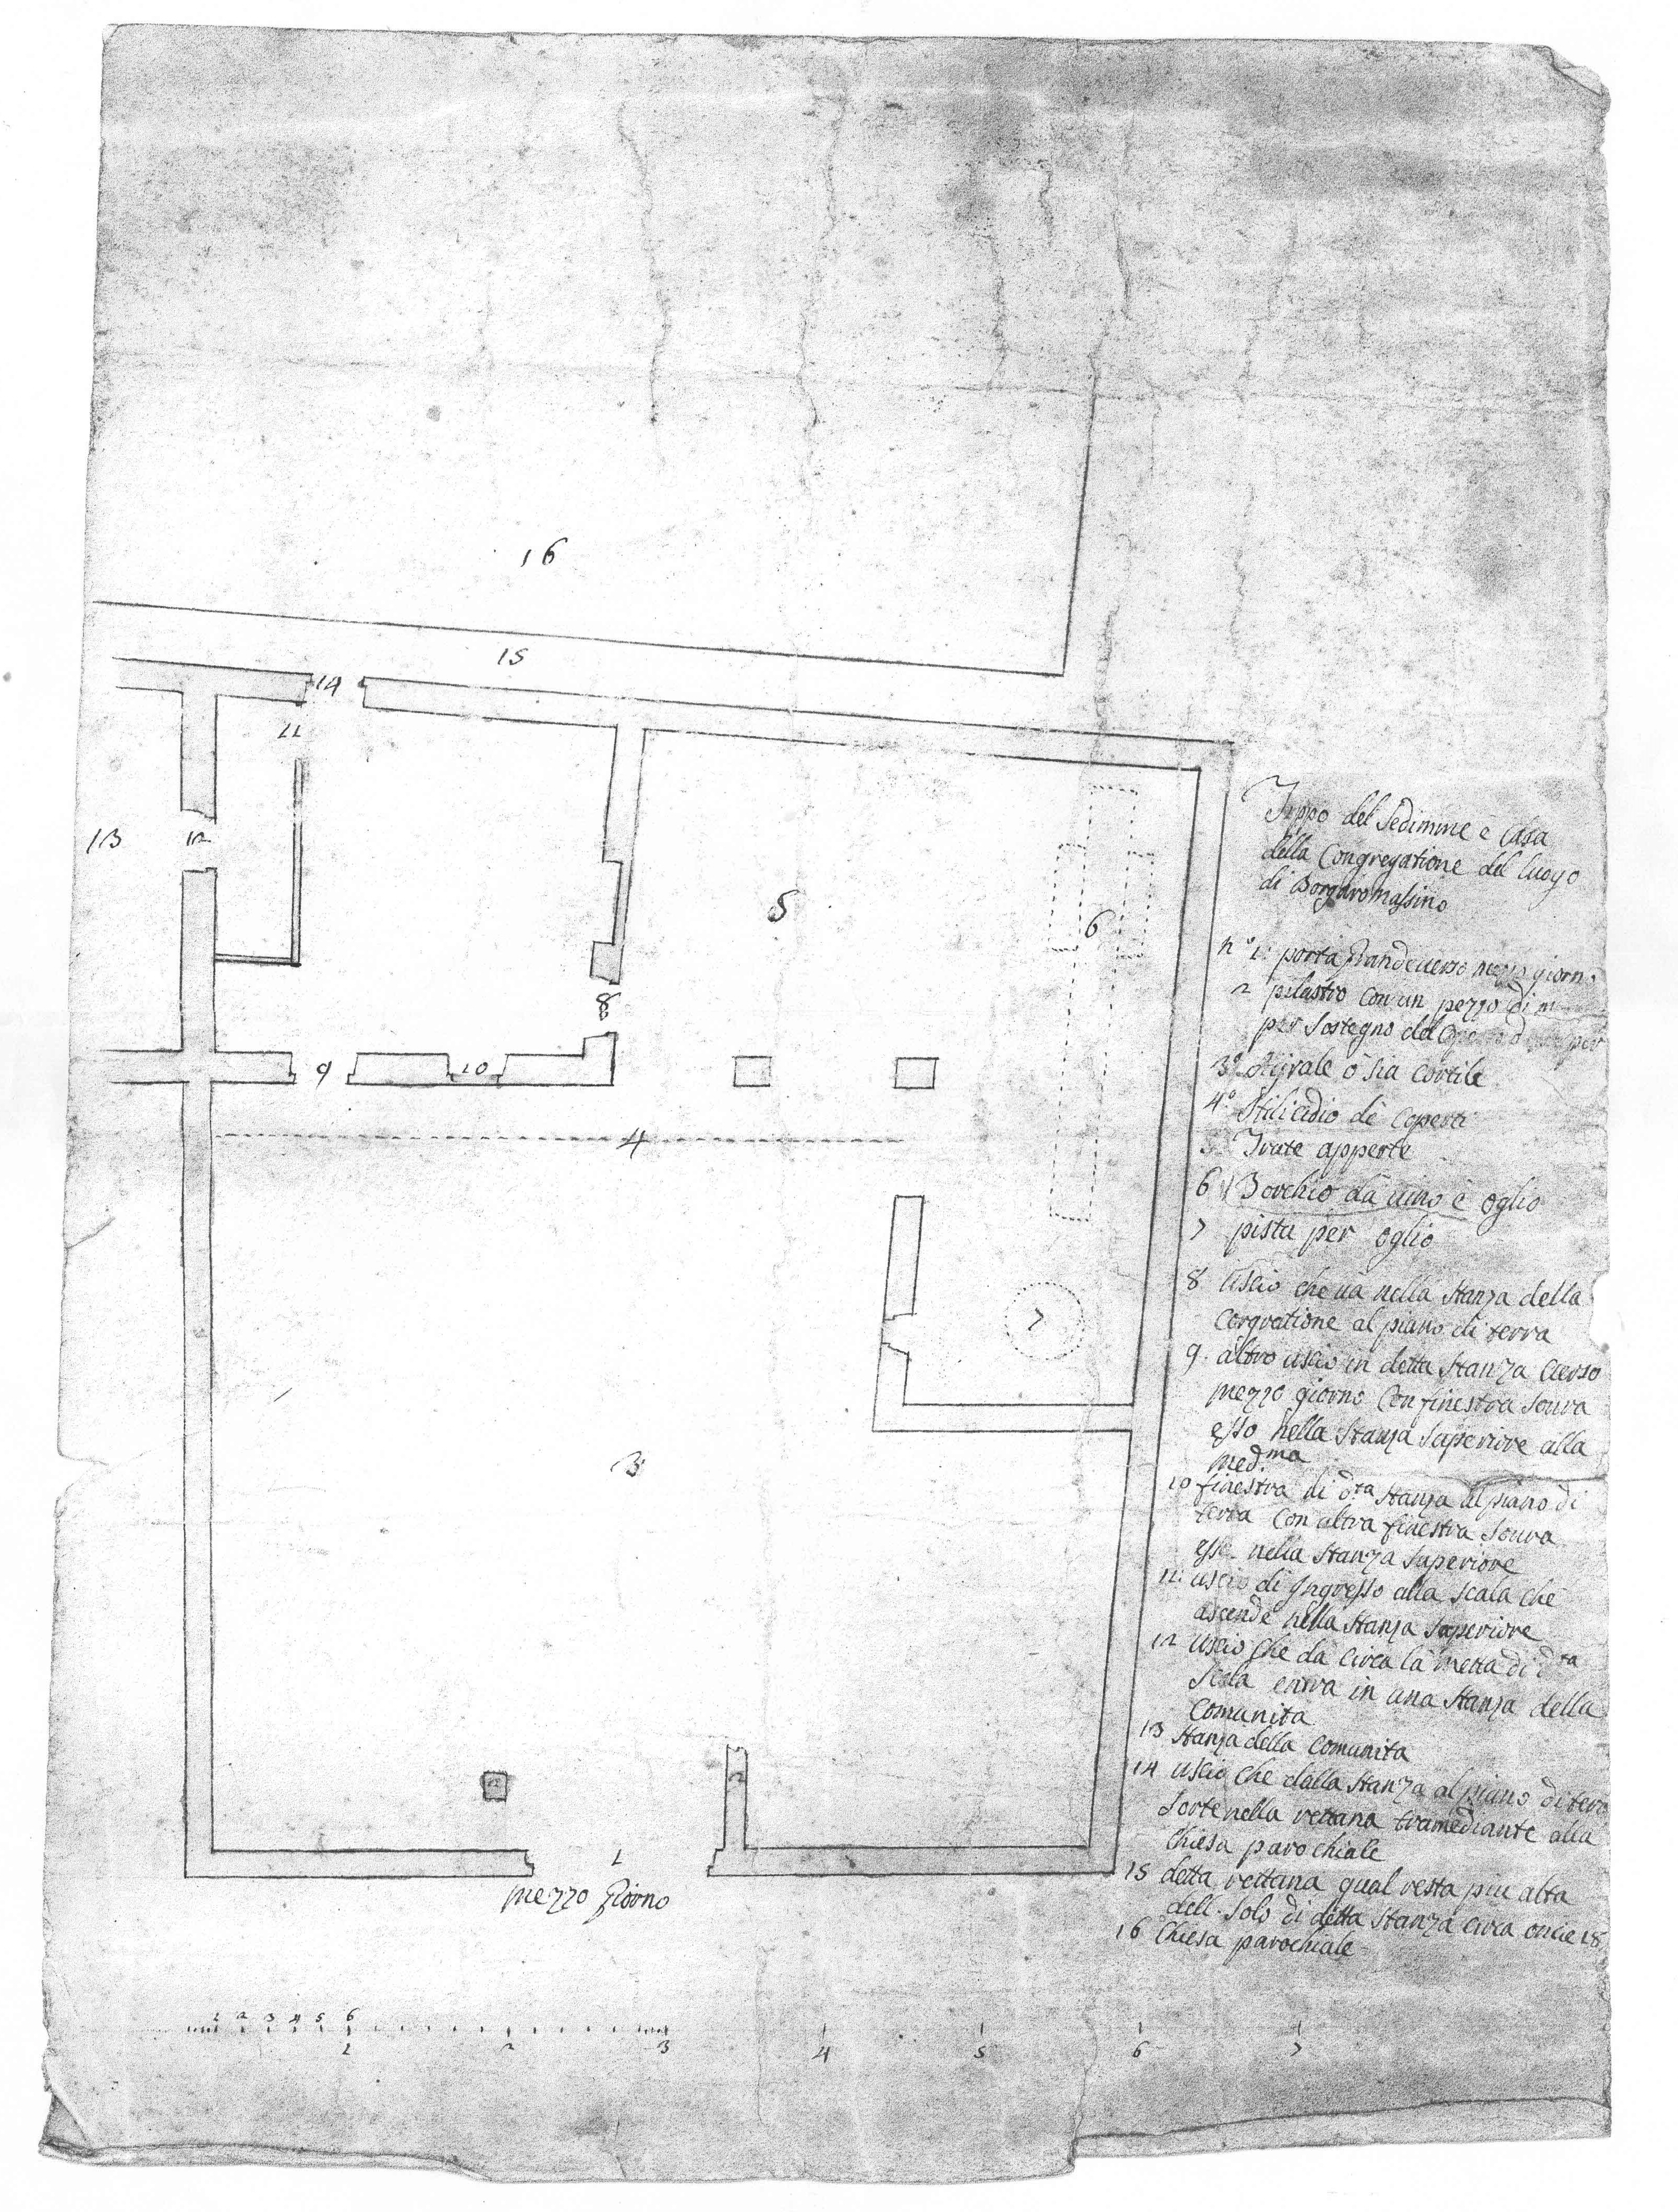 16
15
14
11
13
12
5
6
8
9
10
4
7
3
2
2
1
mezzo Giorno
1 2 3 4 5 6
1 2 3 4 5 6 7
Tippo del Sedimme è Casa
della Congregatione del luogo
di Borgaromassino
n.° 1: porta Grande verso mezzo giorno
2 pilastro con un pezzo di
per sostegno del
3.° Ayrale ò sia cortile
4.° Stilicidio de Coperti
5 Trate apperte
6 Torchio da vino è oglio
7 pista per oglio
8 Uscio che và nella Stanza della
Congratione al piano di terra
9. altro uscio in detta Stanza verso
mezzo giorno Con finestra sovra
esso nella Stanza Superiore alla
med.ma
10 finestra di d.ta Stanza al piano di
terra Con altra finestra sovra
essa nella Stanza Superiore
11: uscio di Ingresso alla scala che
ascende nella Stanza Superiore
12 Uscio che da circa la metta di d.ta
Scala entra in una Stanza della
Comunita
13 Stanza della Comunita
14 Uscio che dalla Stanza al piano di terra
sorte nella rettana tramediante alla
Chiesa parochiale
15 detta rettana qual resta piu alta
dell. Solo di detta Stanza circa oncie 18
16 Chiesa parochiale